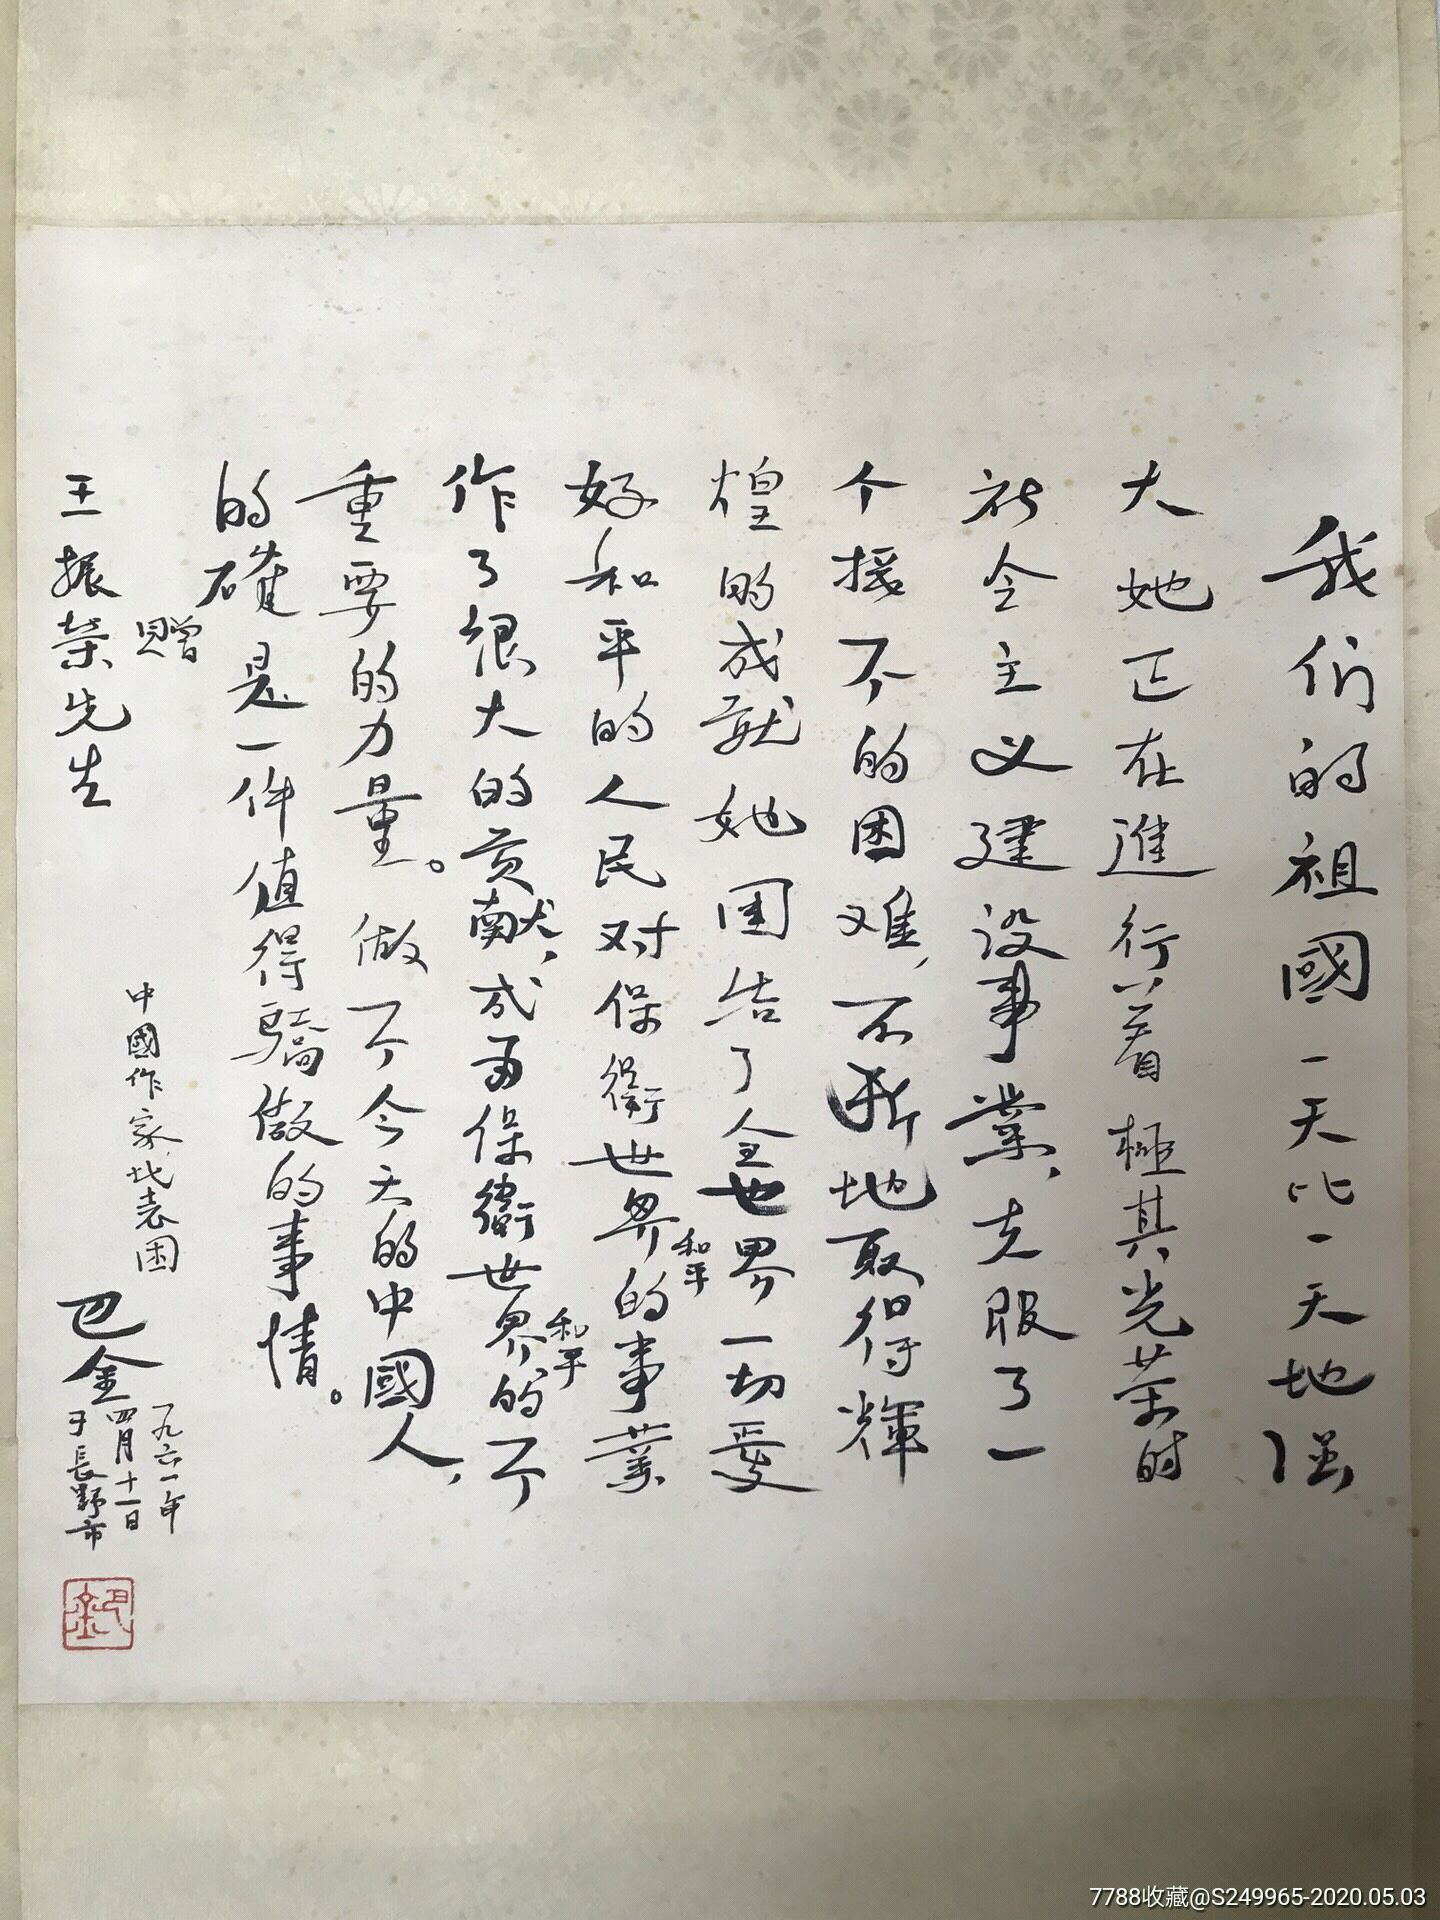 我们的祖國一天比一天地强
大她正在進行着極其光荣的
社会主义建设事業，克服了一
个接一个的困难，不断地取得輝
煌的成就她团结了全世界一切爱
好和平的人民对保衛世界和平的事業
作了很大的贡献，成为保衛世界和平的一个
重要的力量。做一个今天的中國人，
的確是一件值得驕傲的事情。
贈
王振荣先生
中國作家代表团
巴金
一九六一年
四月十一日
于長野市
7788收藏@S249965-2020.05.03